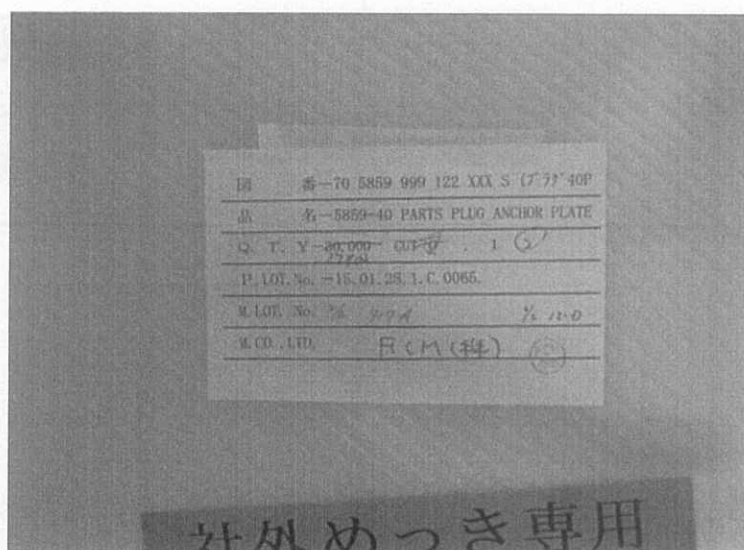 図 番-70 5859 999 122 XXX S (プラグ 40P
品 名-5859-40 PARTS PLUG ANCHOR PLATE
Q. T. Y-30,000- CUT . 1
P.LOT.No. -15.01.28.1.C.0065.
M.LOT. No.
M.CO.,LTD. RCM(株)
社外めっき専用